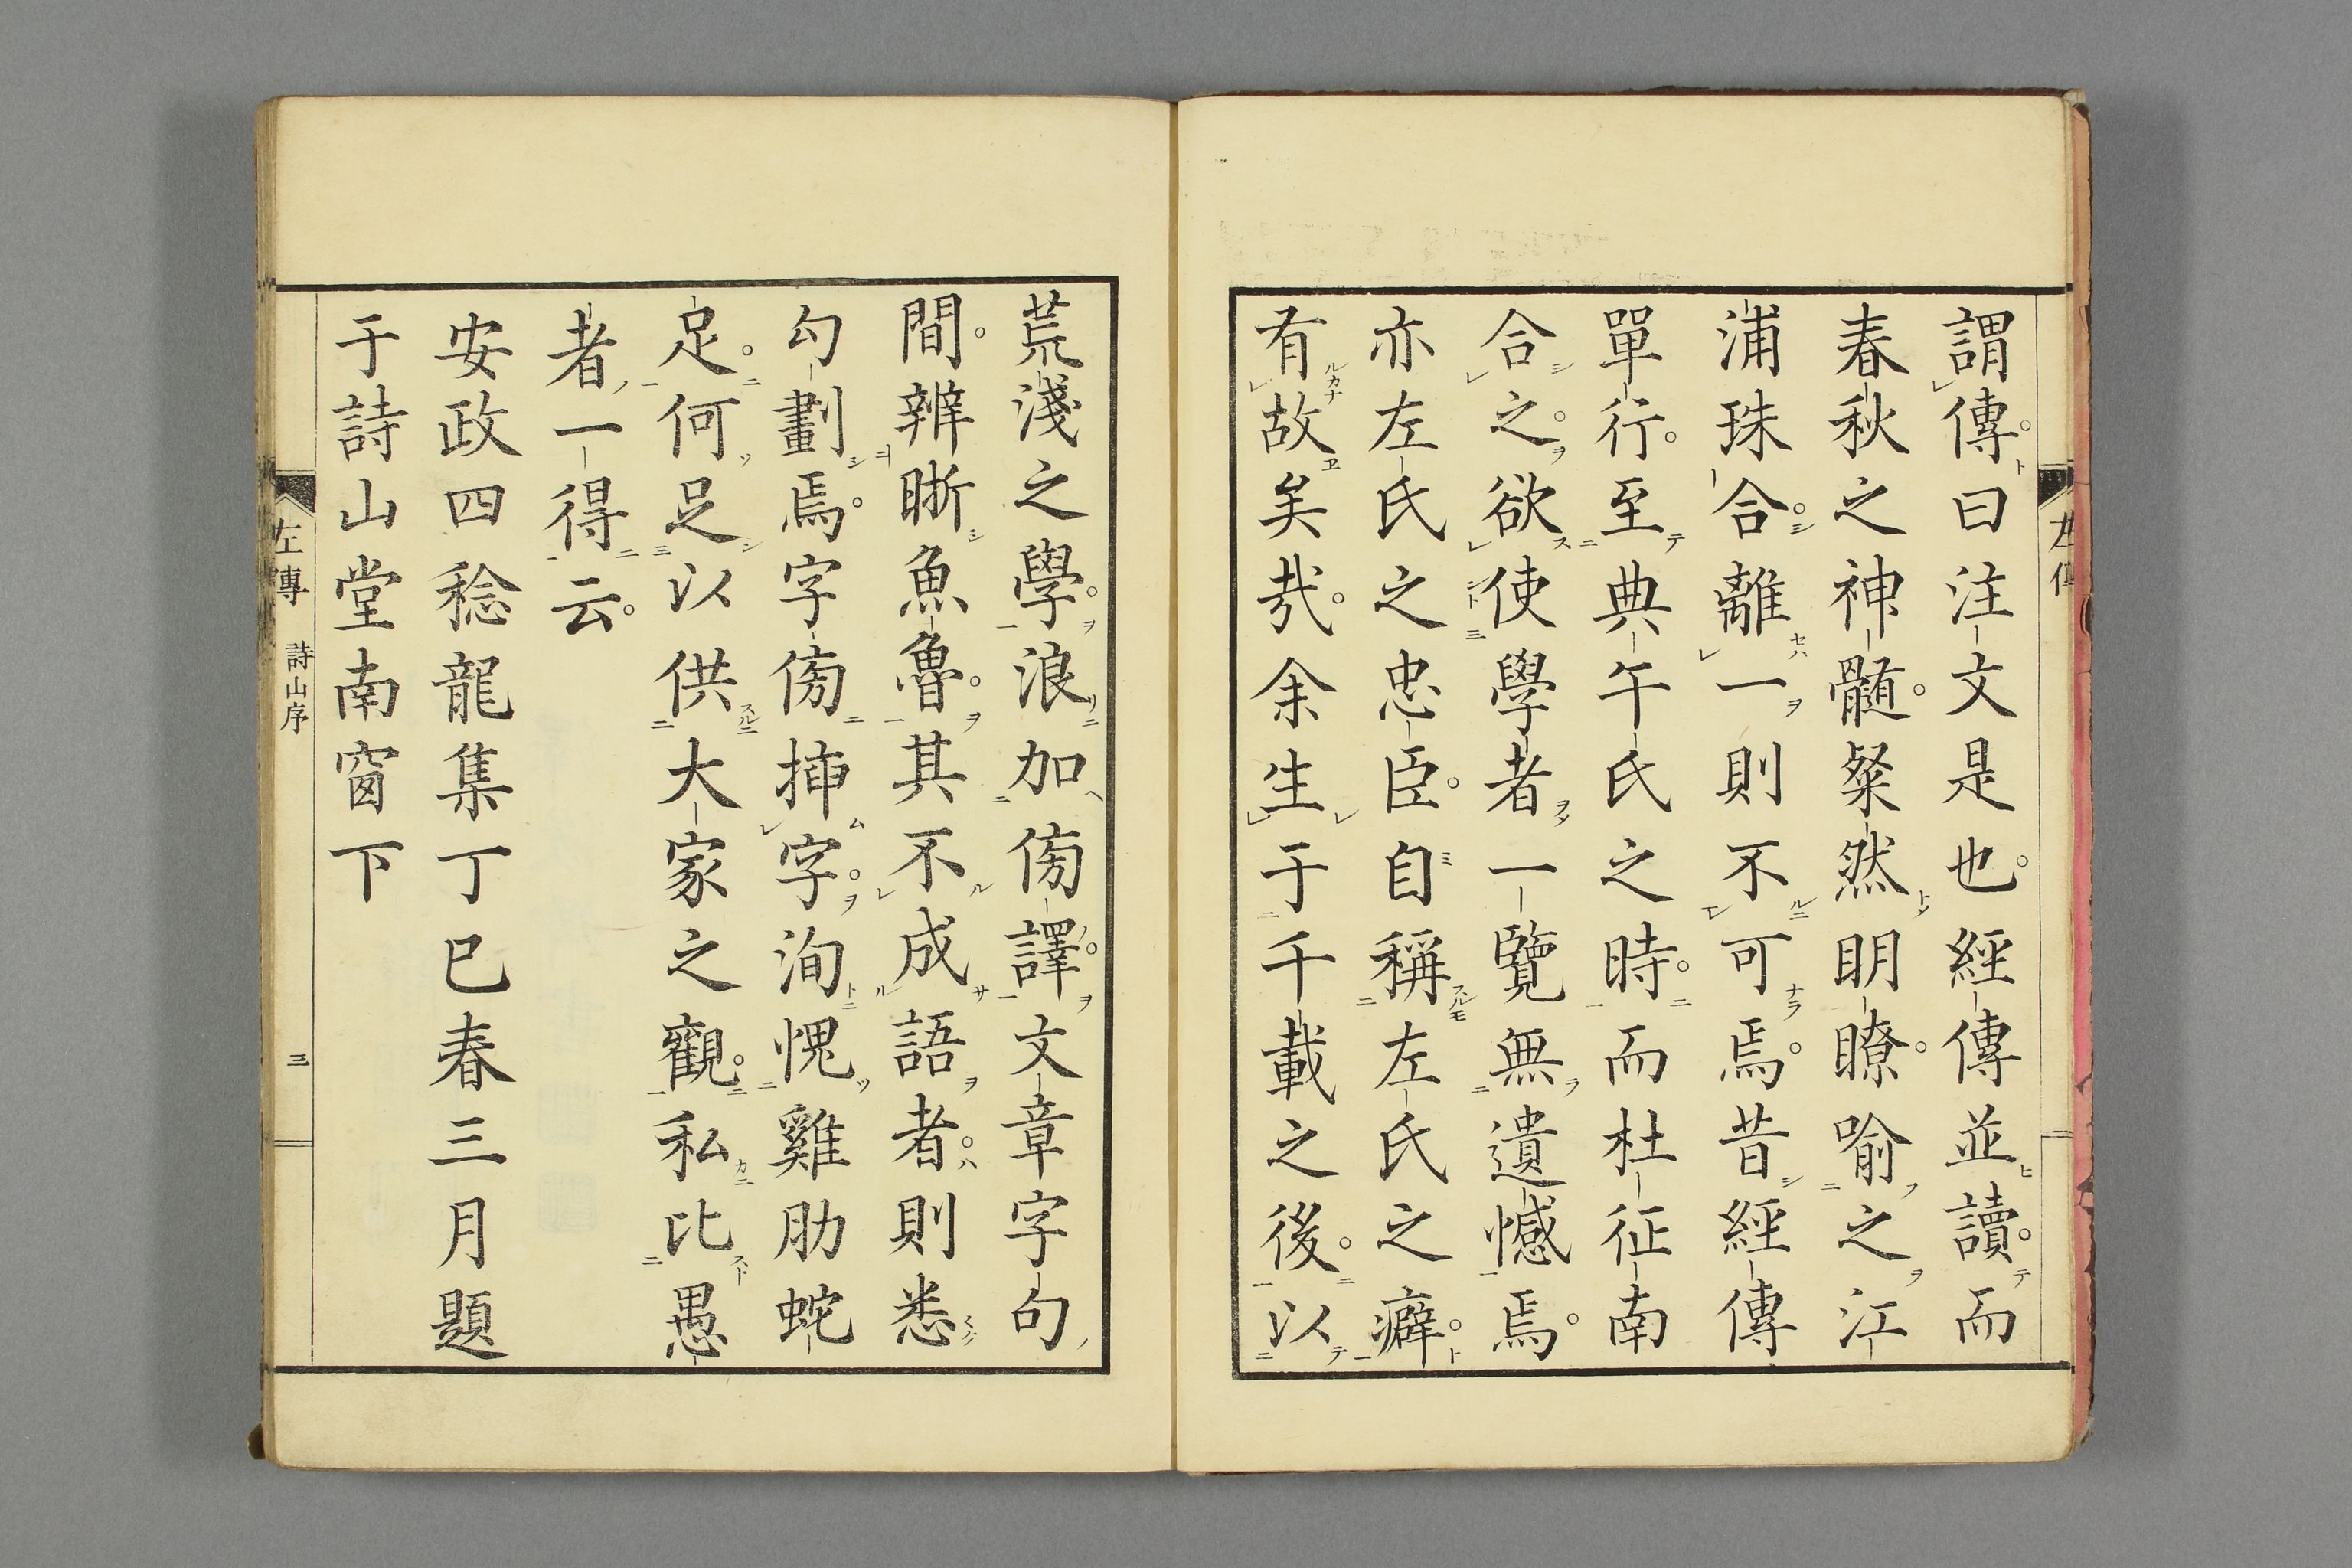 謂傳曰注文是也經傳並讀而
春秋之神髓粲然明瞭喻之江
浦珠合離一則不可焉昔經傳
單行至典午氏之時而杜征南
合之欲使學者一覽無遺憾焉
亦左氏之忠臣自稱左氏之癖
有故矣哉余生于千載之後以
荒淺之學浪加傍譯文章字句
間辨晰魚魯其不成語者則悉
勾劃焉字傍挿字洵愧雞肋蛇
足何足以供大家之觀私比愚
者一得云
安政四稔龍集丁巳春三月題
于詩山堂南窗下
左傳 詩山序 三